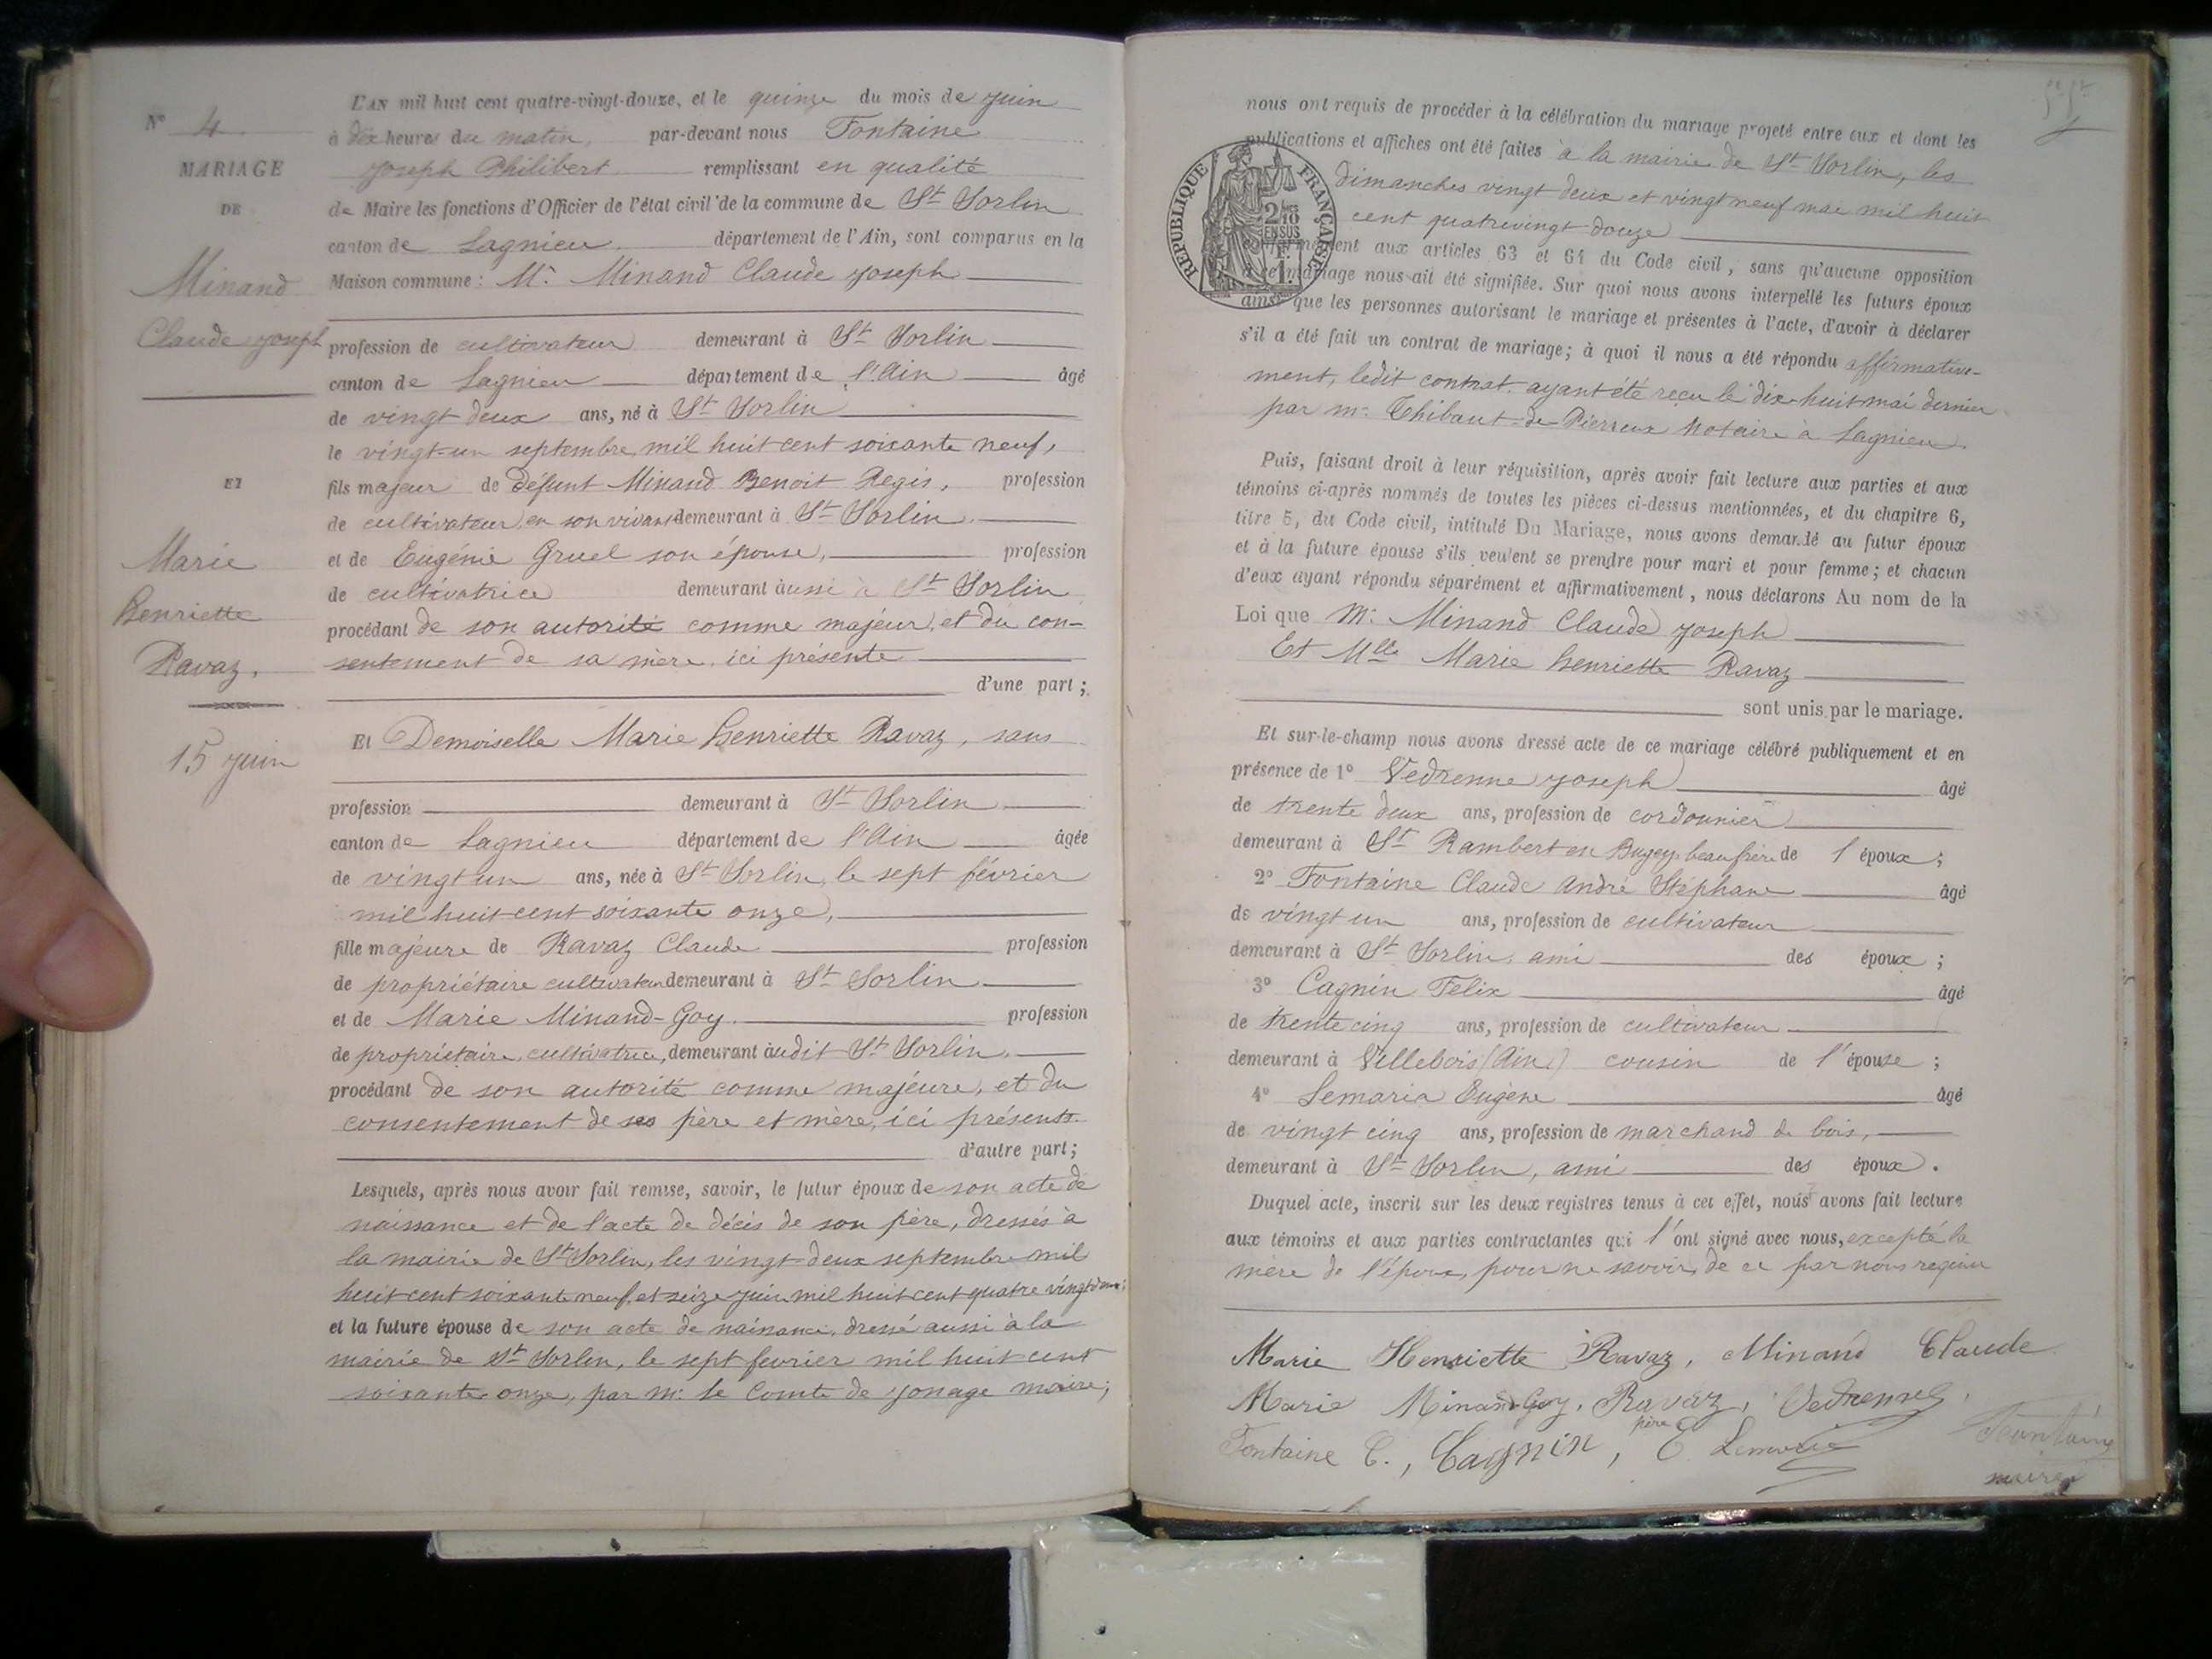 N° 4
MARIAGE
DE
Minand
Claude Joseph
ET
Marie
henriette
Ravaz.
15 Juin
L'AN mil huit cent quatre-vingt-douze, et le quinze du mois de Juin
à dix heures du matin, par-devant nous Fontaine
Joseph Philibert remplissant en qualité
de Maire les fonctions d'Officier de l'état civil de la commune de St Sorlin
canton de Lagnieu. département de l'Ain, sont comparus en la
Maison commune : Mr. Minand Claude Joseph
profession de cultivateur demeurant à St Sorlin
canton de Lagnieu département de l'Ain âgé
de vingt deux ans, né à St Sorlin
le vingt-un septembre mil huit cent soixante neuf,
fils majeur de défunt Minand Benoit Regis, profession
de cultivateur, en son vivant demeurant à St Sorlin
et de Eugénie Gruel son épouse, profession
de cultivatrice demeurant aussi à St Sorlin
procédant de son autorité comme majeur, et du con-
sentement de sa mère, ici présente
d'une part ;
Et Demoiselle Marie henriette Ravaz, sans
profession demeurant à St Sorlin
canton de Lagnieu département de l'Ain âgée
de vingt un ans, née à St Sorlin, le sept février
mil huit cent soixante onze,
fille majeure de Ravaz Claude profession
de propriétaire cultivateur demeurant à St Sorlin
et de Marie Minand-Goy. profession
de propriétaire, cultivatrice, demeurant audit St Sorlin,
procédant de son autorité comme majeure, et du
consentement de ses père et mère, ici présents.
d'autre part ;
Lesquels, après nous avoir fait remise, savoir, le futur époux de son acte de
naissance et de l'acte de décès de son père, dressés à
la mairie de St Sorlin, les vingt-deux septembre mil
huit cent soixante neuf, et seize juin mil huit cent quatre vingt
et la future épouse de son acte de naissance, dressé aussi à la
mairie de St Sorlin, le sept fevrier mil huit cent
soixante onze, par mr. le Comte de Jonage maire;
nous ont requis de procéder à la célébration du mariage projeté entre eux et dont les
publications et affiches ont été faites à la mairie de St Sorlin, les
dimanches vingt deux et vingt neuf mai mil huit
cent quatrevingt douze
RÉPUBLIQUE FRANÇAISE
2/10 EN SUS
1 F.
conformément aux articles 63 et 64 du Code civil, sans qu'aucune opposition
à ce mariage nous ait été signifiée. Sur quoi nous avons interpellé les futurs époux
ainsi que les personnes autorisant le mariage et présentes à l'acte, d'avoir à déclarer
s'il a été fait un contrat de mariage; à quoi il nous a été répondu affirmative-
ment, ledit contrat ayant été reçu le dix-huit mai dernier
par mr. Thibaut-de-Pierreux Notaire à Lagnieu
Puis, faisant droit à leur réquisition, après avoir fait lecture aux parties et aux
témoins ci-après nommés de toutes les pièces ci-dessus mentionnées, et du chapitre 6,
titre 5, du Code civil, intitulé Du Mariage, nous avons demandé au futur époux
et à la future épouse s'ils veulent se prendre pour mari et pour femme; et chacun
d'eux ayant répondu séparément et affirmativement, nous déclarons Au nom de la
Loi que Mr. Minand Claude Joseph
Et Mlle Marie henriette Ravaz
sont unis par le mariage.
Et sur-le-champ nous avons dressé acte de ce mariage célébré publiquement et en
présence de 1° Vedrenne Joseph âgé
de trente deux ans, profession de cordonnier
demeurant à St Rambert en Bugey beaufrère de l époux ;
2° Fontaine Claude André Stéphane âgé
de vingt un ans, profession de cultivateur
demeurant à St Sorlin, ami des époux ;
3° Cagnin Felix âgé
de trente cinq ans, profession de cultivateur
demeurant à Villebois (Ain) cousin de l'épouse ;
4° Lemaria Eugène âgé
de vingt cinq ans, profession de marchand de bois,
demeurant à St Sorlin, ami des époux.
Duquel acte, inscrit sur les deux registres tenus à cet effet, nous avons fait lecture
aux témoins et aux parties contractantes qui l'ont signé avec nous, excepté la
mère de l'époux, pour ne savoir, de ce par nous requise
Marie Henriette Ravaz, Minand Claude
Marie Minand-Goy, Ravaz père, Vedrenne,
Fontaine C., Cagnin, E Lemaria
Fontaine
maire